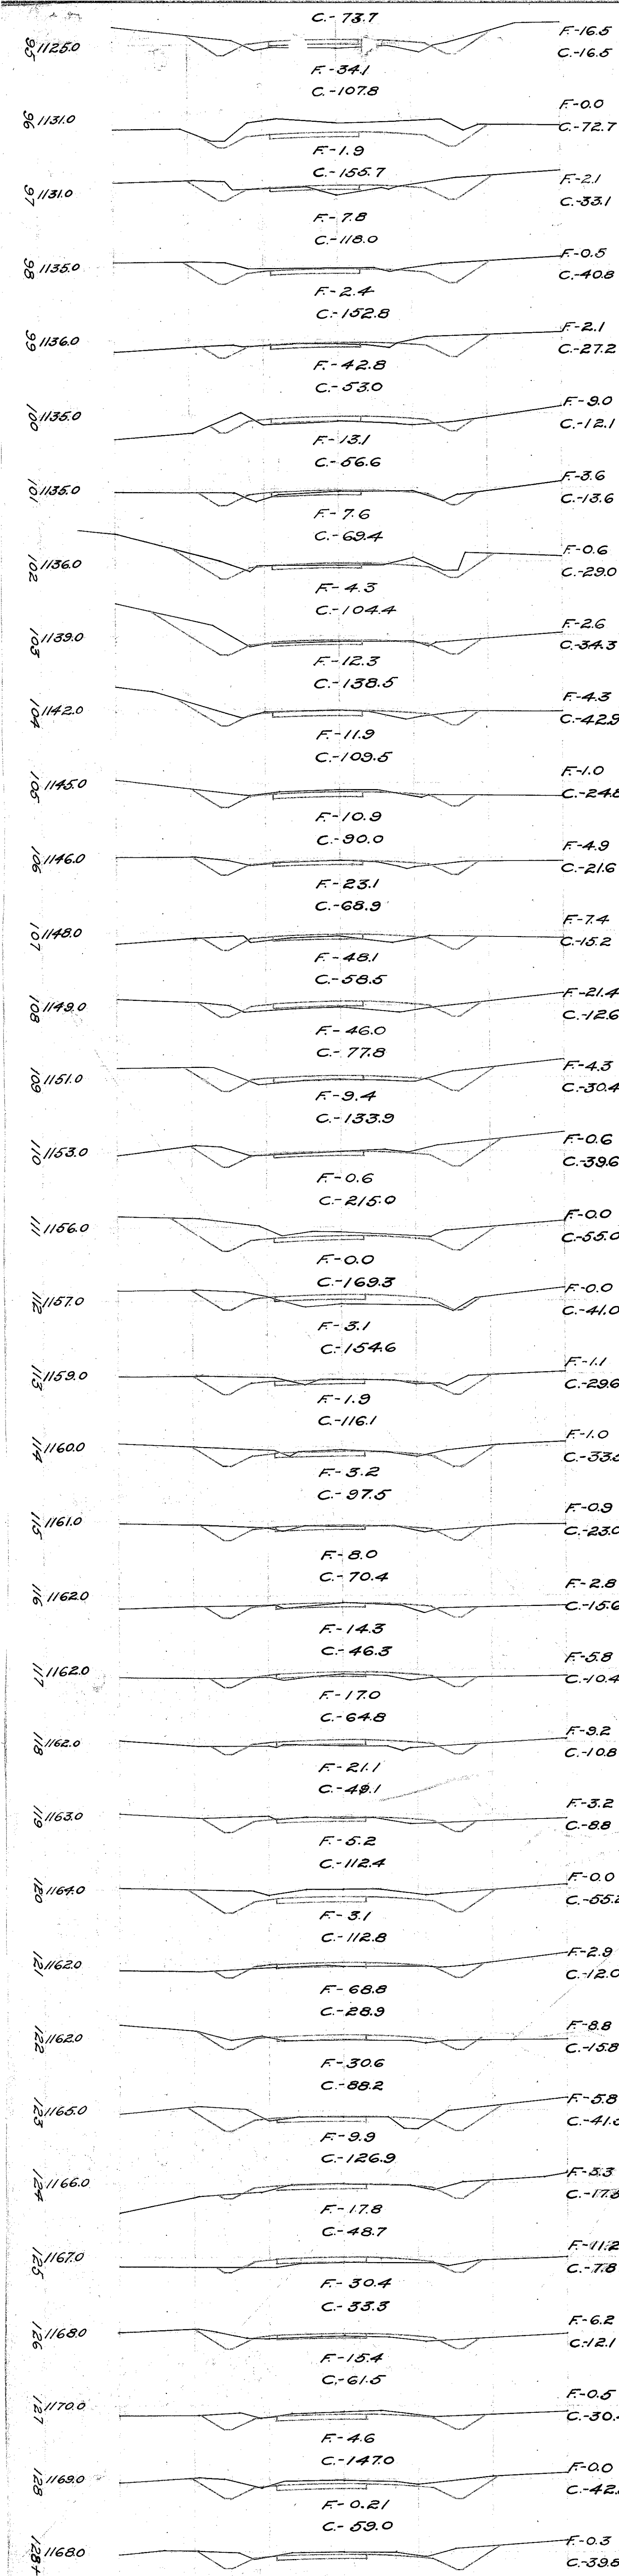 C.-73.7
95 1125.0
F.-16.5
C.-16.5
F.-34.1
C.-107.8
96 1131.0
F.-0.0
C.-72.7
F.-1.9
C.-155.7
97 1131.0
F.-2.1
C.-33.1
F.-7.8
C.-118.0
98 1135.0
F.-0.5
C.-40.8
F.-2.4
C.-152.8
99 1136.0
F.-2.1
C.-27.2
F.-42.8
C.-53.0
100 1135.0
F.-9.0
C.-12.1
F.-13.1
C.-56.6
101 1135.0
F.-3.6
C.-13.6
F.-7.6
C.-69.4
102 1136.0
F.-0.6
C.-29.0
F.-4.3
C.-104.4
103 1139.0
F.-2.6
C.-34.3
F.-12.3
C.-138.5
104 1142.0
F.-4.3
C.-42.9
F.-11.9
C.-109.5
105 1145.0
F.-1.0
C.-24.8
F.-10.9
C.-90.0
106 1146.0
F.-4.9
C.-21.6
F.-23.1
C.-68.9
107 1148.0
F.-7.4
C.-15.2
F.-48.1
C.-58.5
108 1149.0
F.-21.4
C.-12.6
F.-46.0
C.-77.8
109 1151.0
F.-4.3
C.-30.4
F.-9.4
C.-133.9
110 1153.0
F.-0.6
C.-39.6
F.-0.6
C.-215.0
111 1156.0
F.-0.0
C.-55.0
F.-0.0
C.-169.3
112 1157.0
F.-0.0
C.-41.0
F.-3.1
C.-154.6
113 1159.0
F.-1.1
C.-29.6
F.-1.9
C.-116.1
114 1160.0
F.-1.0
C.-33.
F.-3.2
C.-97.5
115 1161.0
F.-0.9
C.-23.0
F.-8.0
C.-70.4
116 1162.0
F.-2.8
C.-15.6
F.-14.3
C.-46.3
117 1162.0
F.-5.8
C.-10.4
F.-17.0
C.-64.8
118 1162.0
F.-9.2
C.-10.8
F.-21.1
C.-49.1
119 1163.0
F.-3.2
C.-8.8
F.-5.2
C.-112.4
120 1164.0
F.-0.0
C.-55.2
F.-3.1
C.-112.8
121 1162.0
F.-2.9
C.-12.0
F.-68.8
C.-28.9
122 1162.0
F.-8.8
C.-15.8
F.-30.6
C.-88.2
123 1165.0
F.-5.8
C.-41.
F.-9.9
C.-126.9
124 1166.0
F.-3.3
C.-17.3
F.-17.8
C.-48.7
125 1167.0
F.-11.2
C.-7.8
F.-30.4
C.-33.3
126 1168.0
F.-6.2
C.-12.1
F.-15.4
C.-61.5
127 1170.0
F.-0.5
C.-30.
F.-4.6
C.-147.0
128 1169.0
F.-0.0
C.-42.
F.-0.21
C.-59.0
128+ 1168.0
F.-0.3
C.-39.8